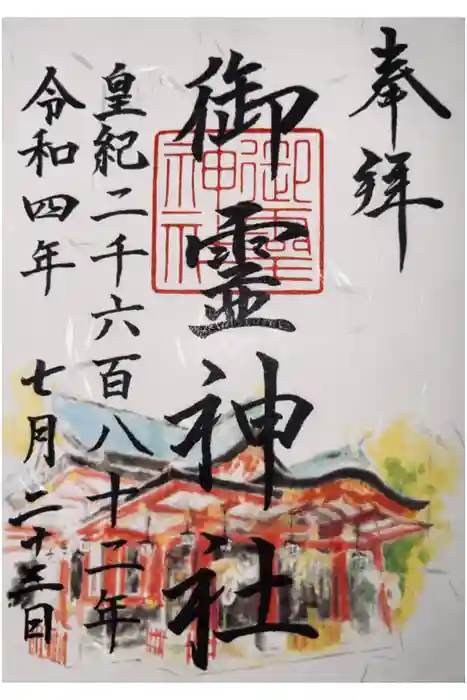 奉拝
御靈神社
御靈神社
皇紀二千六百八十二年
令和四年 七月二十三日